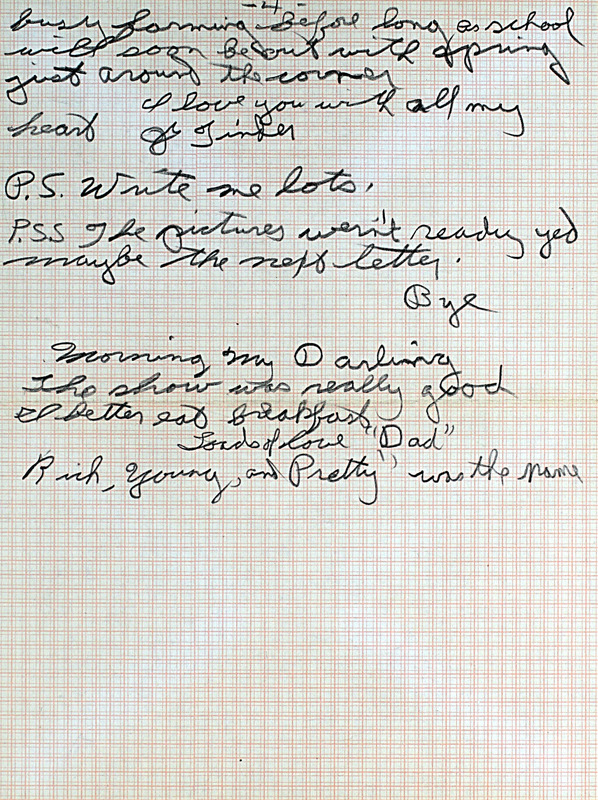 -4-
busy farming before long as school
will soon be out with spring
just around the corner
I love you with all my
heart Tinker
P.S. Write me lots.
P.SS The pictures wern't ready yed
maybe the next letter.
Bye
Morning My Darling
The show was really good
I better eat breakfast
Loads of love "Dad"
Rich, Young, and Pretty" was the name